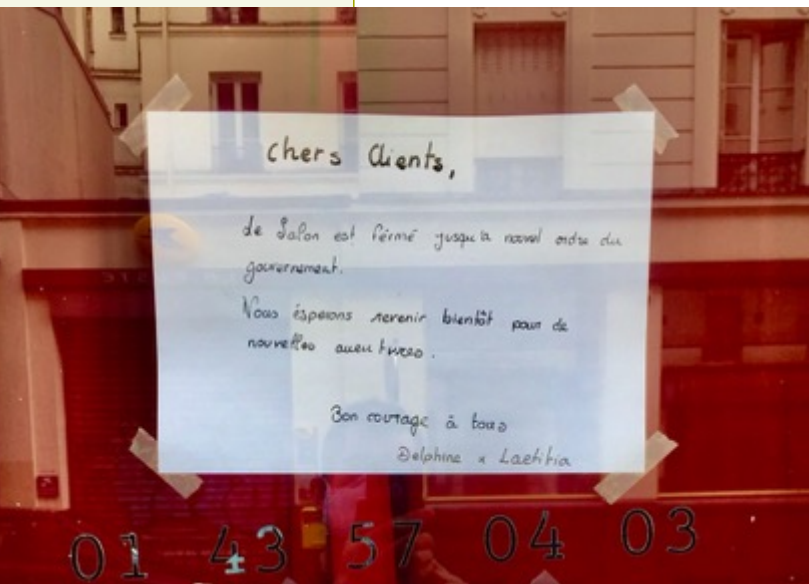 Chers Clients,
Le Salon est férmé jusqu'à nouvel ordre du
gouvernement.
Nous ésperons revenir bientôt pour de
nouvelles aventures.
Bon courage à tous
Delphine x Laetitia
01 43 57 04 03